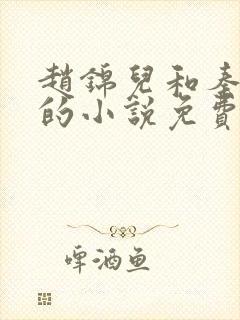 趙錦兒和秦
的小說免費
啤酒鱼